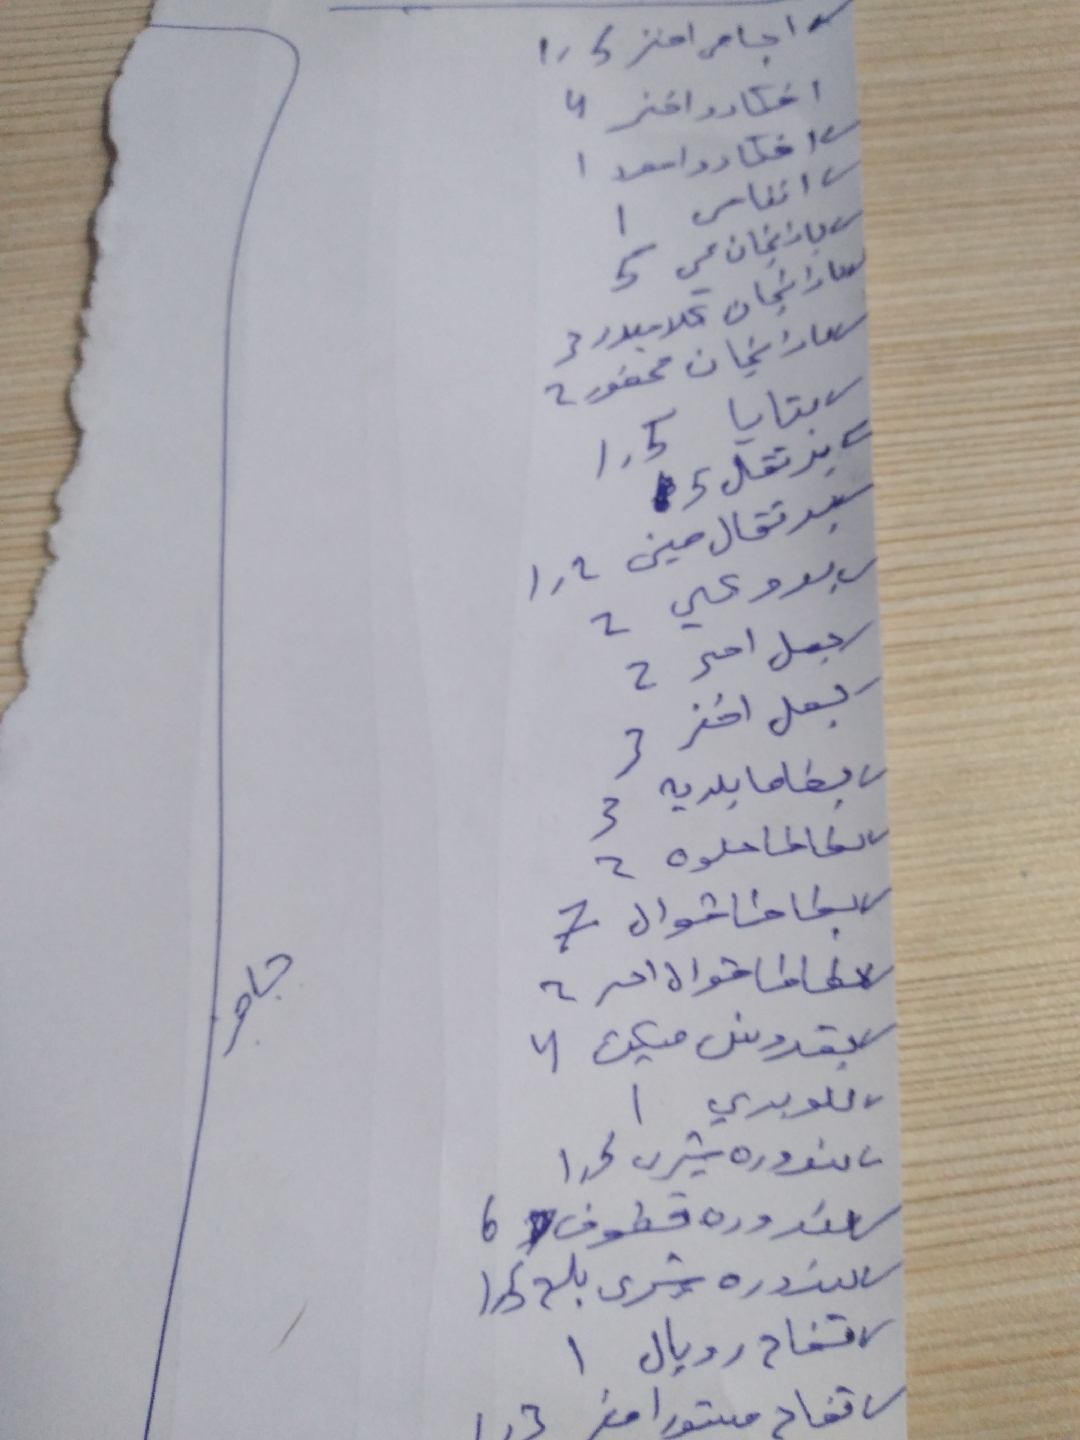 اجاص اخضر 1,5
افكادو اخضر 4
افكادو اسود 1
اناناس 1
باذنجان عجمي 5
باذنجان كلاسيك 3
باذنجان محفور 2
بتايا 1,5
برتقال 5
برتقال صيني 1,2
بروكلي 2
بصل احمر 2
بصل اخضر 3
بطاطا بلدية 3
بطاطا حلوه 2
بطاطا شوال 7
بطاطا شوال احمر 2
بقدونس ميكس 4
بلوبيري 1
بندوره شيري 1,5
بندوره قطوف 6
بندوره شيري بلح 1,5
تفاح رويال 1
تفاح مستورد اخضر 1,3
جاهز